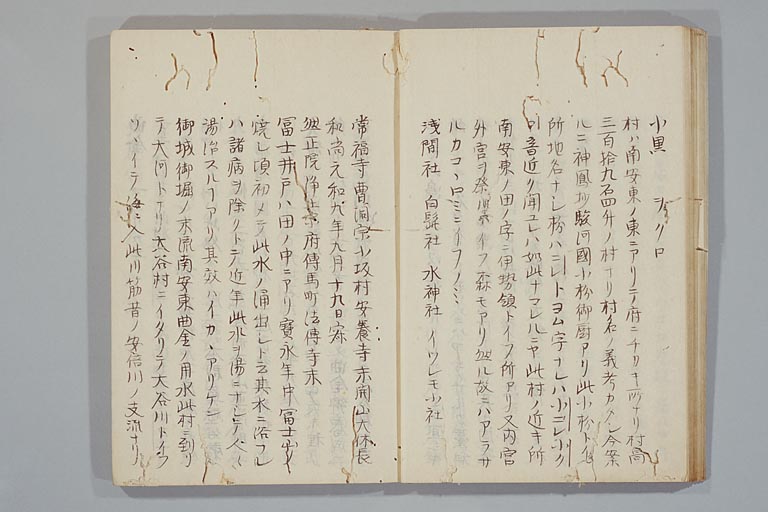 小黒 ヲグロ
村ハ南安東ノ東ニアリテ府ニチカキ所ナリ村高
三百拾九石四升ノ村ナリ村名ノ義考カタシ今案
ルニ神鳳抄駿河國小松御厨アリ此小松ト云
所地名ナシ松ハ トヨム字ナレハ小
口音近ク聞ユレハ如此ナマレルニヤ此村ノ近キ所
南安東ノ田ノ字ニ伊勢領トイフ所アリ又内宮
外宮ヲ祭 イフ森モアリ然ル故ニハアラサ
ルカコヽロミニイフノミ
浅間社 白髭社 水神社 イツレモ小社
常福寺曹洞宗小坂村安養寺末開山大休長
和尚元和九年九月十九日寂
正院浄土宗府傳馬町法傳寺末
冨士井戸ハ田ノ中ニアリ寶永年中冨士山
焼シ頃初メテ此水ノ涌出シト云其水ニ浴スレ
ハ諸病ヲ除クトテ近年此水ヲ湯ニナシテ人々
湯治スルヿアリ其效ハイカヽアリケン
御城御堀ノ末流南安東曲金ノ用水此村ニ到リ
テ大河トナリ大谷村ニイタリテ大谷川トイフ
イテ海ニ入此川筋昔ノ安倍川ノ支流ナリ